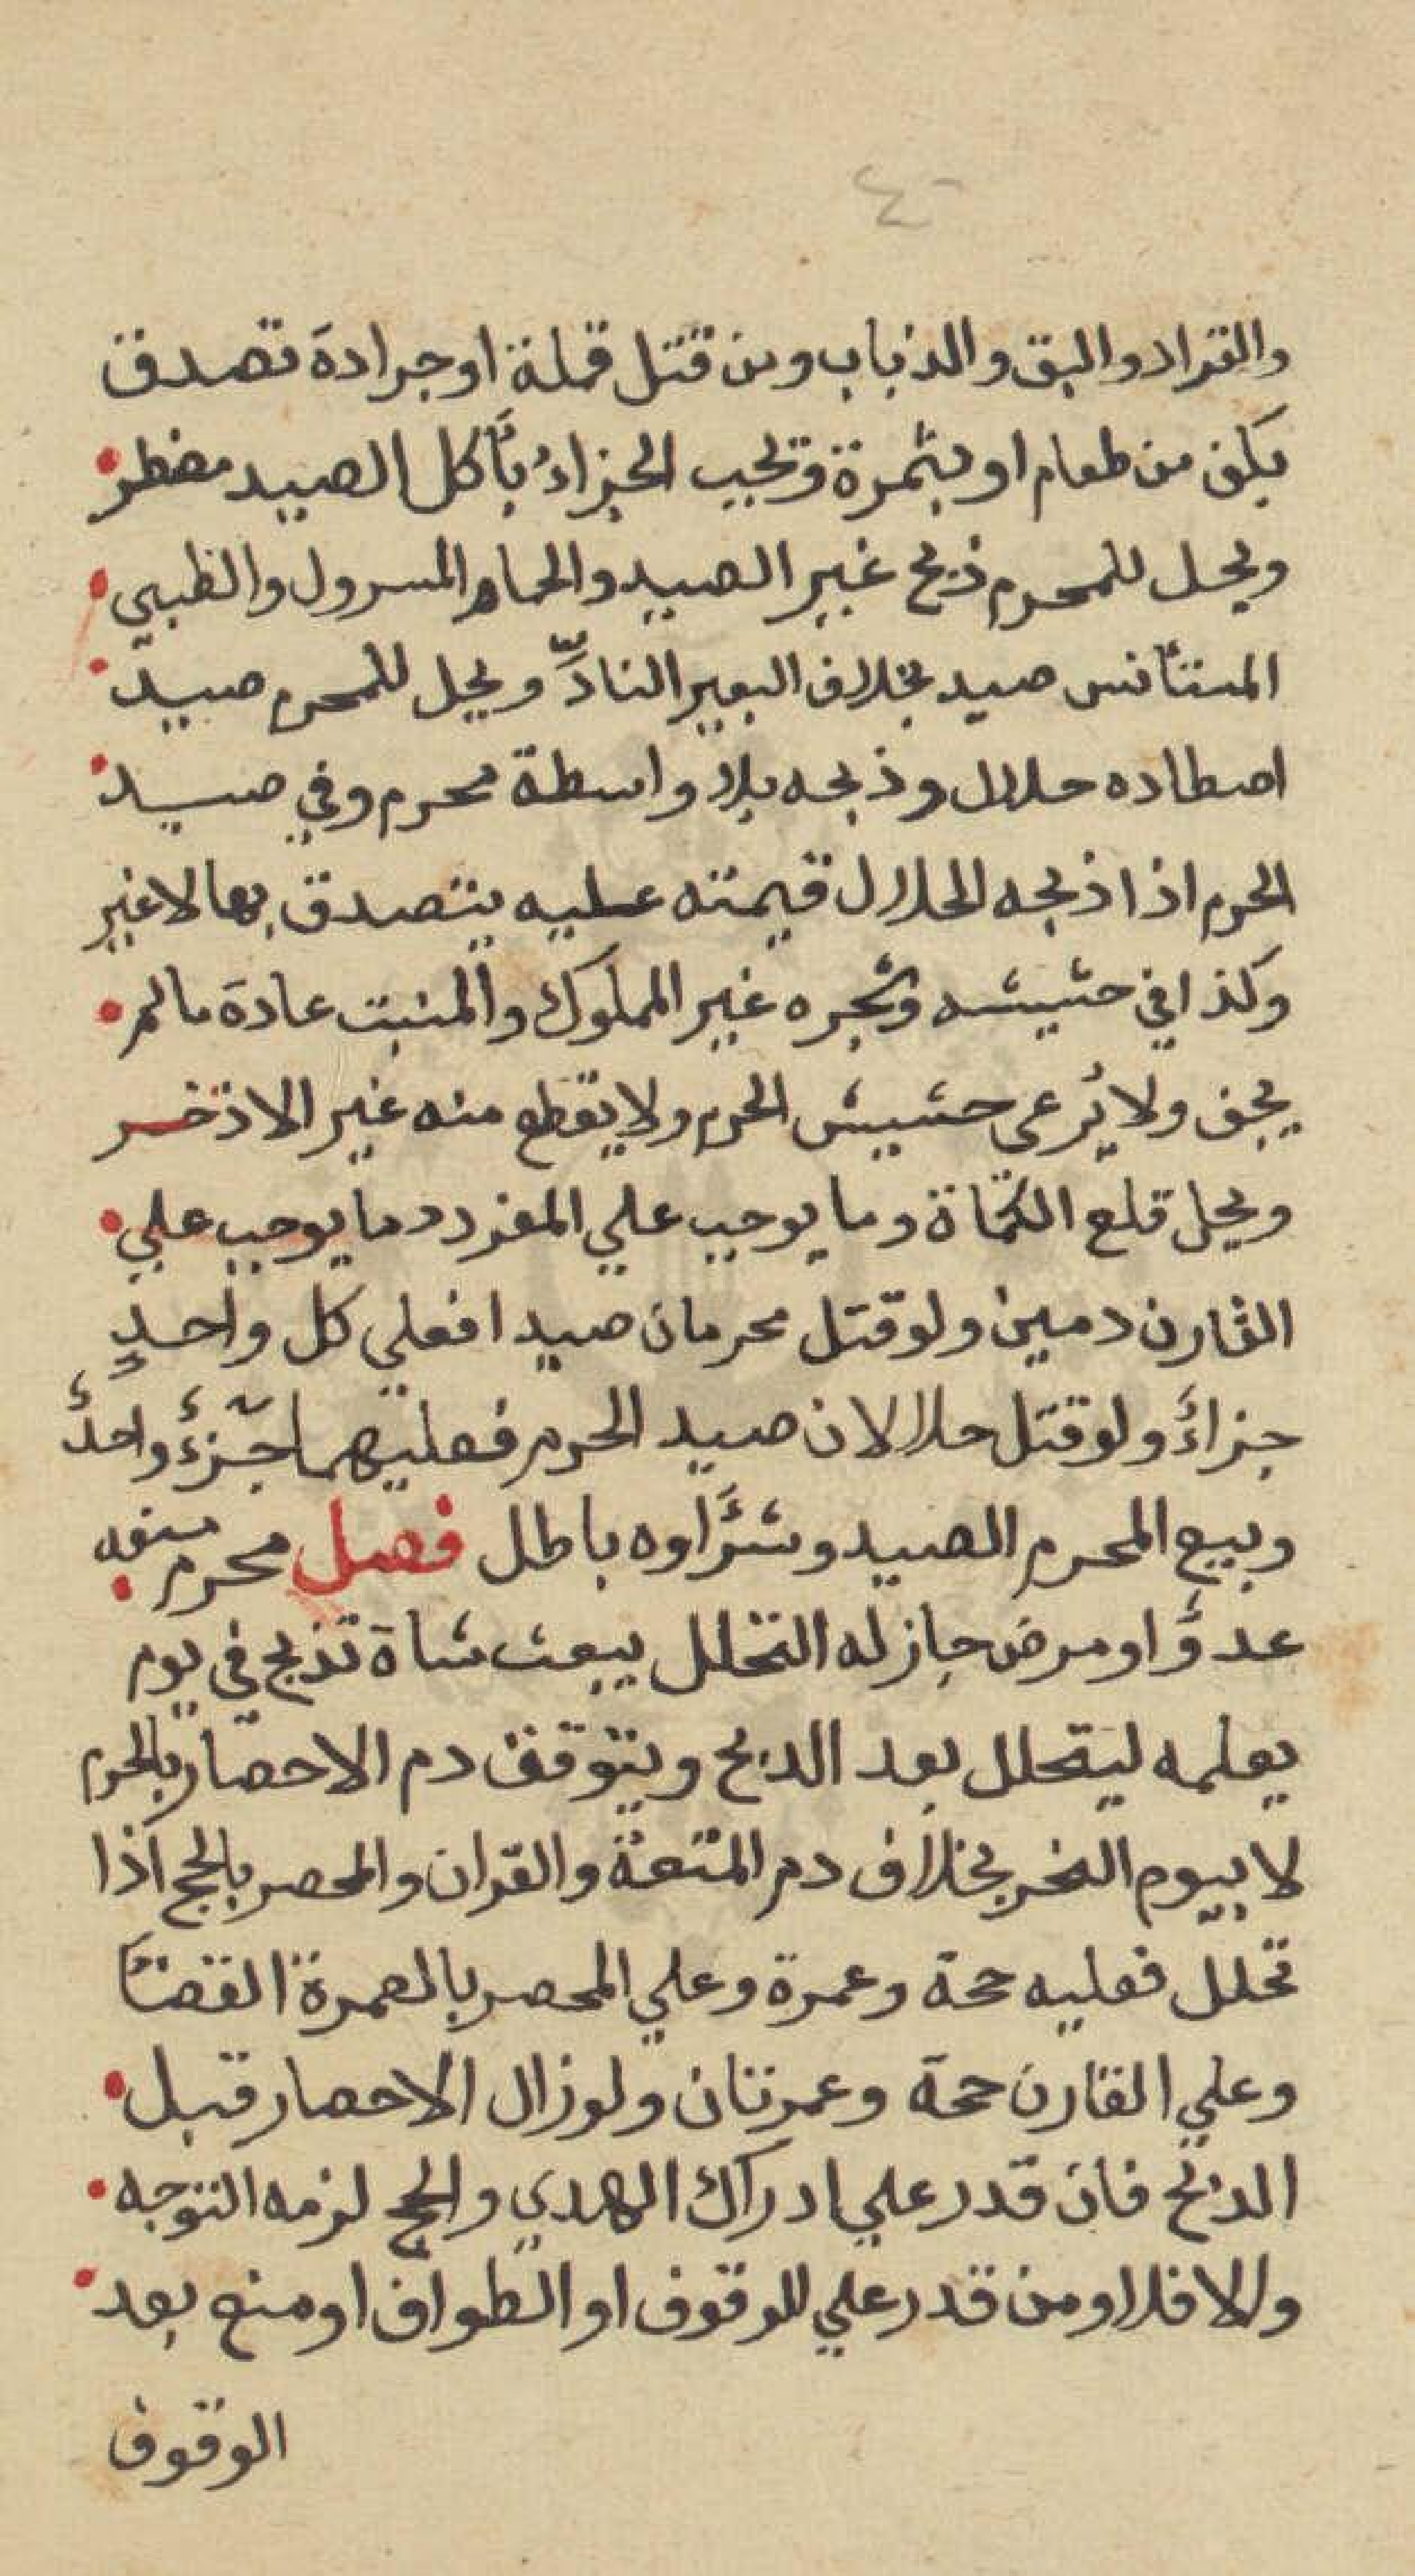 ٤٠
والقراد والبق والذباب ومن قتل قملة او جرادة تصدق
بكف من طعام او بتمرة وتجب الجزاء بأكل الصيد مضطر
ويحل للمحرم ذبح غير الصيد والحمام المسرول والظبي
المستأنس صيد بخلاف البعير النادّ ويحل للمحرم صيد
اصطاده حلال وذبحه بلا واسطة محرم وفي صيد
الحرم اذا ذبحه الحلال قيمته عليه يتصدق بها لا غير
وكذا في حشيشه وشجره غير المملوك والمنبت عادة ما لم
يجف ولا يُرعى حشيش الحرم ولا يقطع منه غير الاذخر
ويحل قلع الكمأة وما يوجب علي المفرد دما يوجب علي
القارن دمين ولو قتل محرمان صيدا فعلي كل واحدٍ
جزاءٌ ولو قتل حلالان صيد الحرم فعليهما جزءٌ واحدٌ
وبيع المحرم الصيد وشرَٓاوه باطل فصل محرم منعه
عدوٌ او مرض جاز له التحلل يبعث شاة تذبح في يوم
يعلمه ليتحلل بعد الذبح ويتوقف دم الاحصار بالحرم
لا بيوم النحر بخلاف دم المتعة والقران والمحصر بالحج اذا
تحلل فعليه حجة وعمرة وعلي المحصر بالعمرة القضٓا
وعلي القارن حجة وعمرتان ولو زال الاحصار قبل
الذبح فان قدر علي ادراك الهدي والحج لزمه التوجه
والا فلا ومن قدر علي الوقوف او الطواف او منع بعد
الوقوف